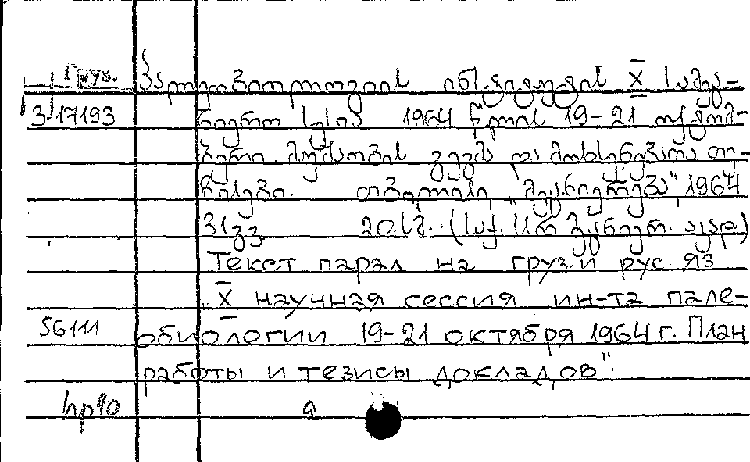 Груз. პალეობიოლოგიის ინსტიტუტის X სამეც-
3/17193 ნიერო სესია 1964 წლის 19-21 ოქტომ-
ბერი. მუშაობის გეგმა და მოხსენებათა თე-
ზისები. თბილისი, „მეცნიერება", 1964
31გვ. 20სმ. (საქ. სსრ მეცნიერ. აკად)
Текст парал на груз и рус яз
X научная сессия ин-та пале-
56111 обиологии 19-21 октября 1964г. План
работы и тезисы докладов"